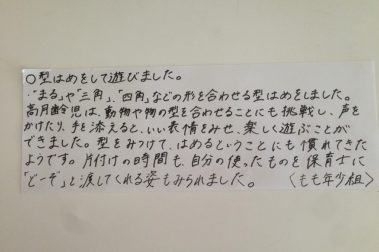 ○型はめをして遊びました。
・"まる"や"三角"、"四角"などの形を合わせる型はめをしました。
高月齢児は、動物や物の型を合わせることにも挑戦し、声を
かけたり、手を添えると、いい表情をみせ、楽しく遊ぶことが
できました。型をみつけて、はめるということにも慣れてきた
ようです。片付けの時間も、自分の使ったものを保育士に
「どーぞ」と渡してくれる姿もみられました。 〈もも年少組〉